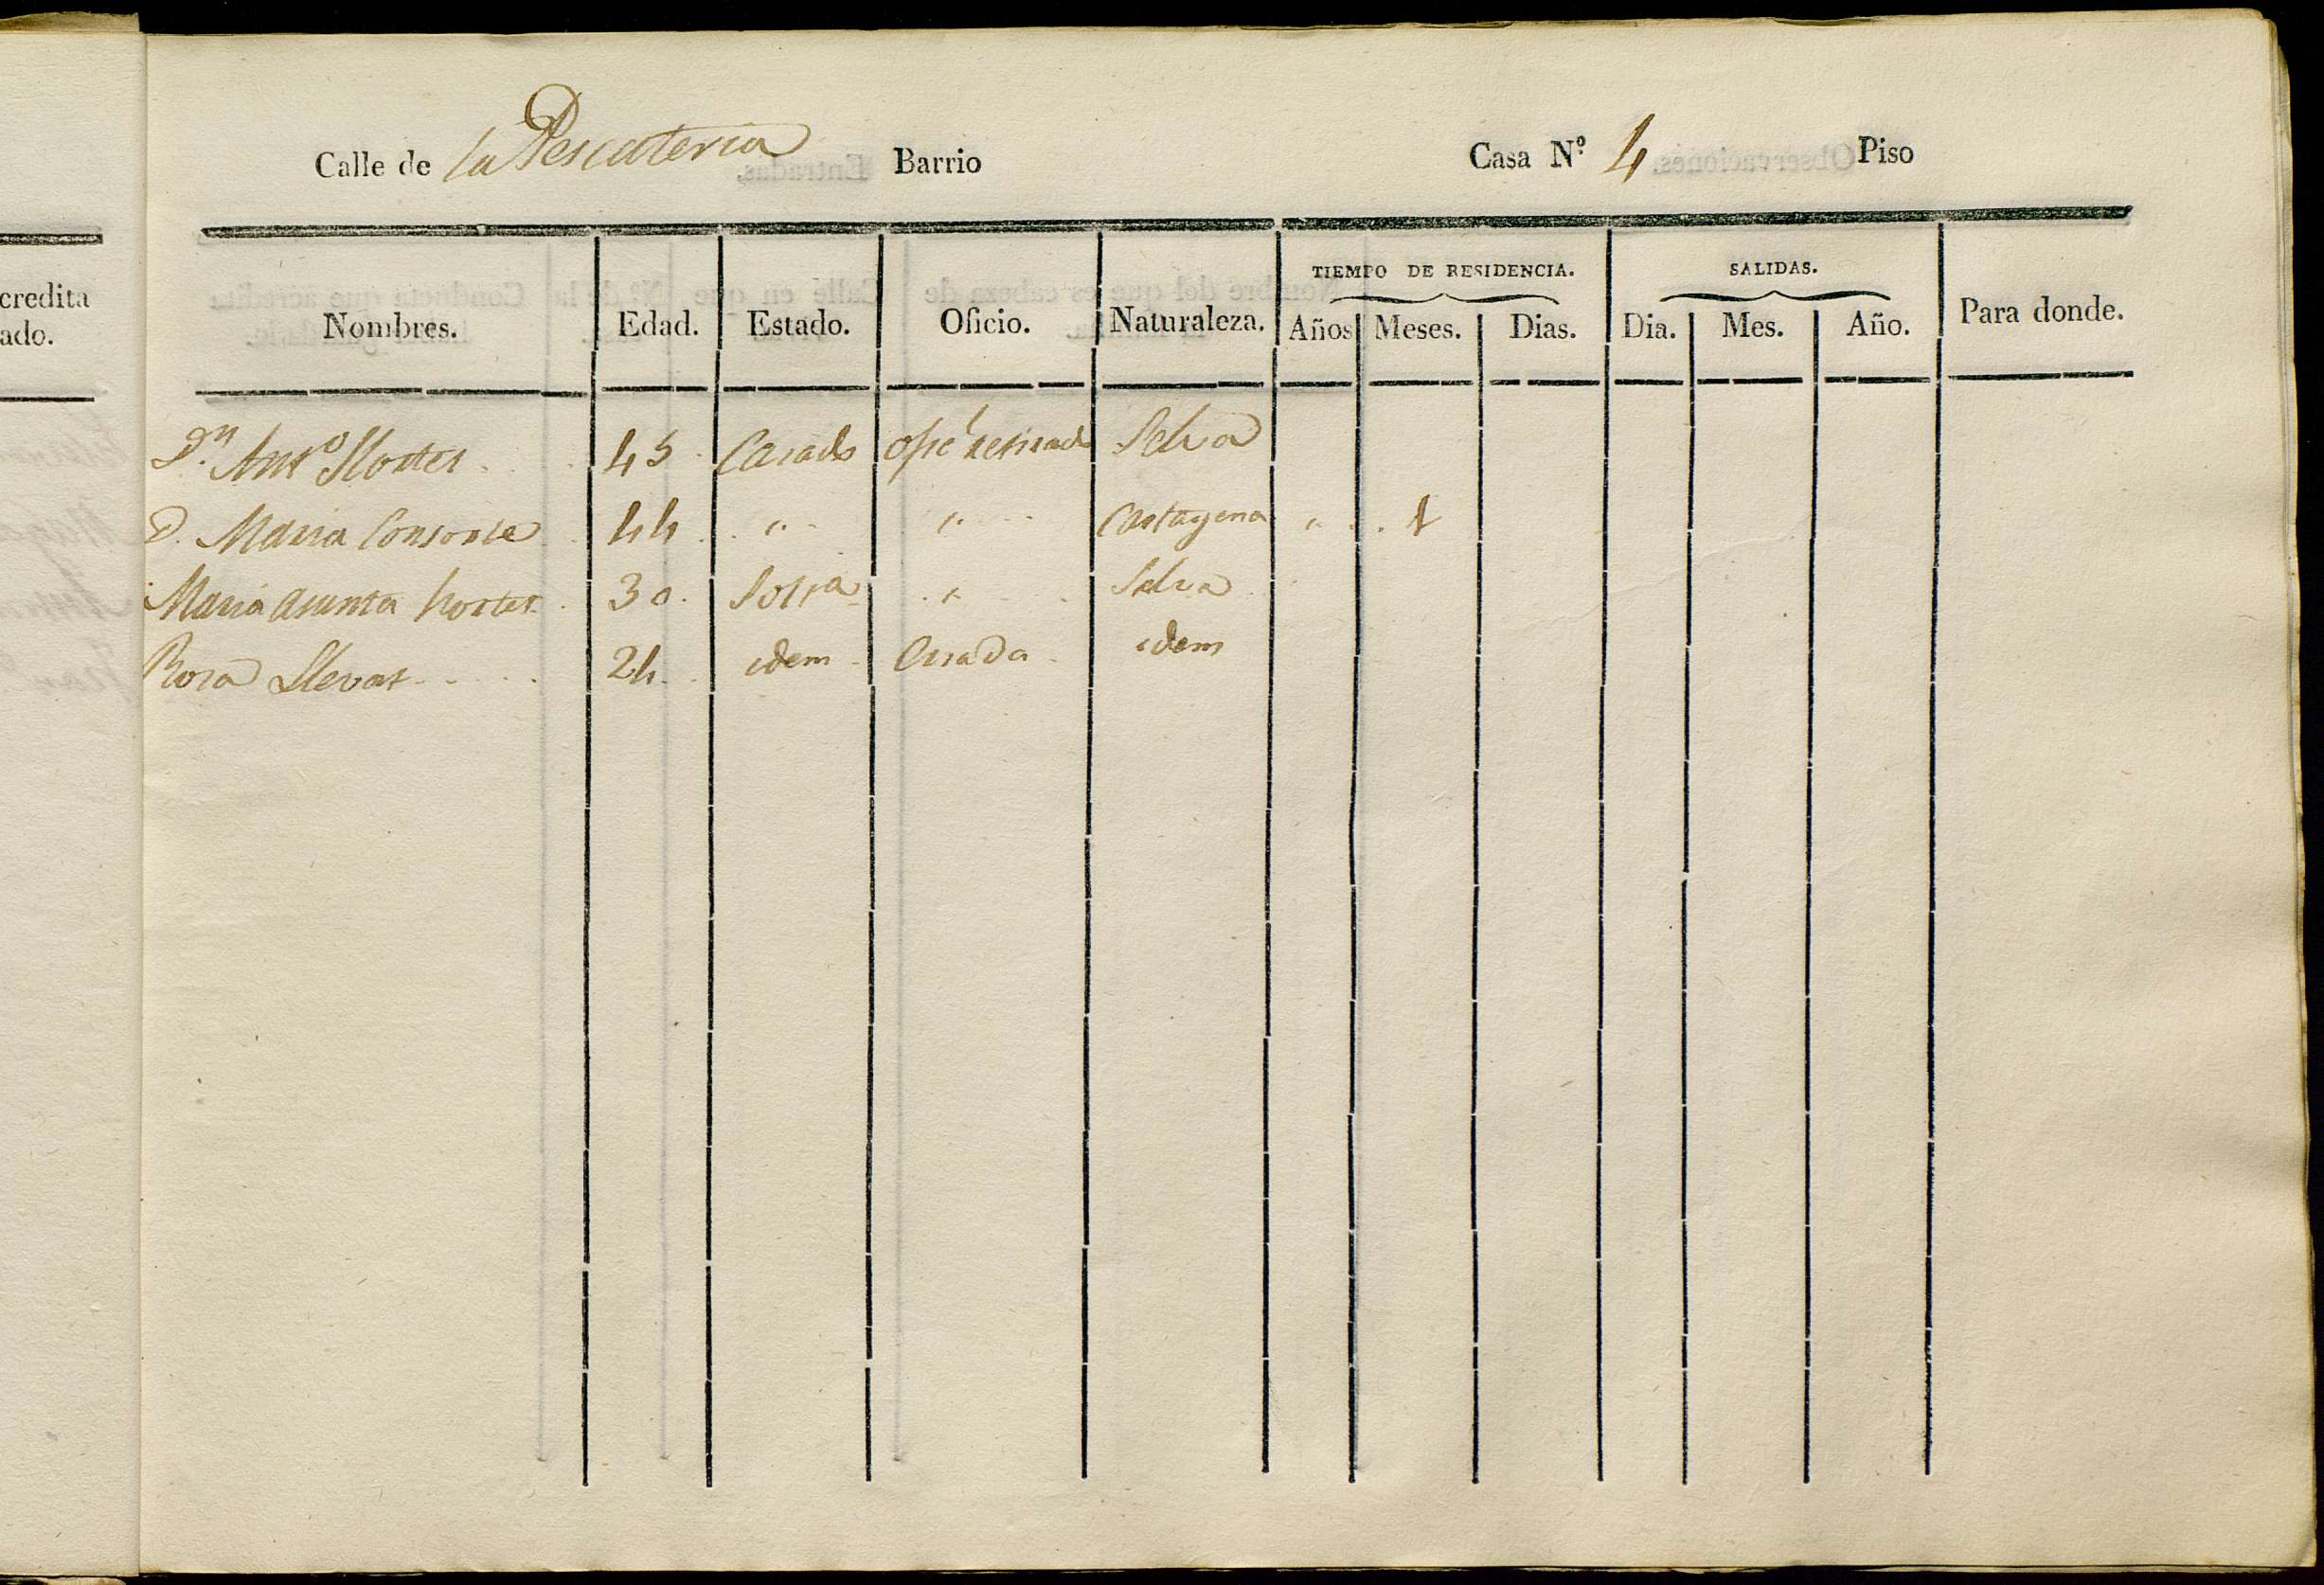 Calle de la Pescateria Barrio Casa Nº 4 Piso
credita
ado.
Nombres. Edad. Estado. Oficio. Naturaleza. TIEMPO DE RESIDENCIA. Años Meses. Dias. SALIDAS. Dia. Mes. Año. Para donde.
Dn Anto 45 Casado retirado Selva
D. Maria Consorte 44 " " Cartagena " 1
Maria Asunta 30 Soltra " Selva
Rosa Llevat 24 idem Criada idem